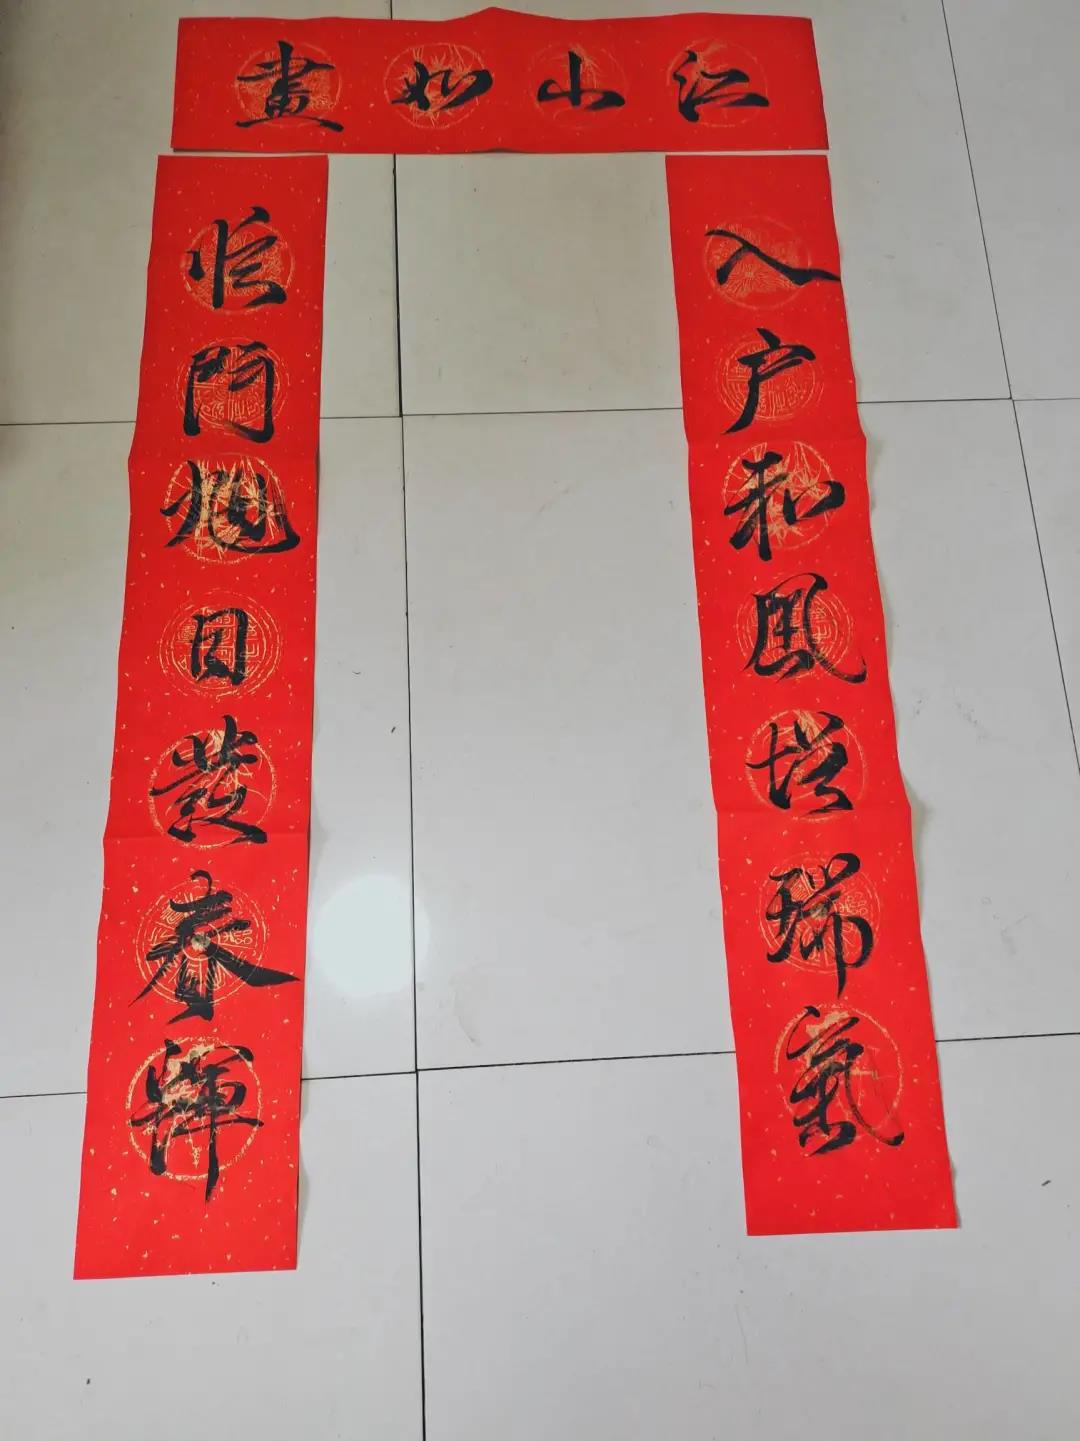 江山如畫
入户和風增瑞氣
臨門旭日發春輝